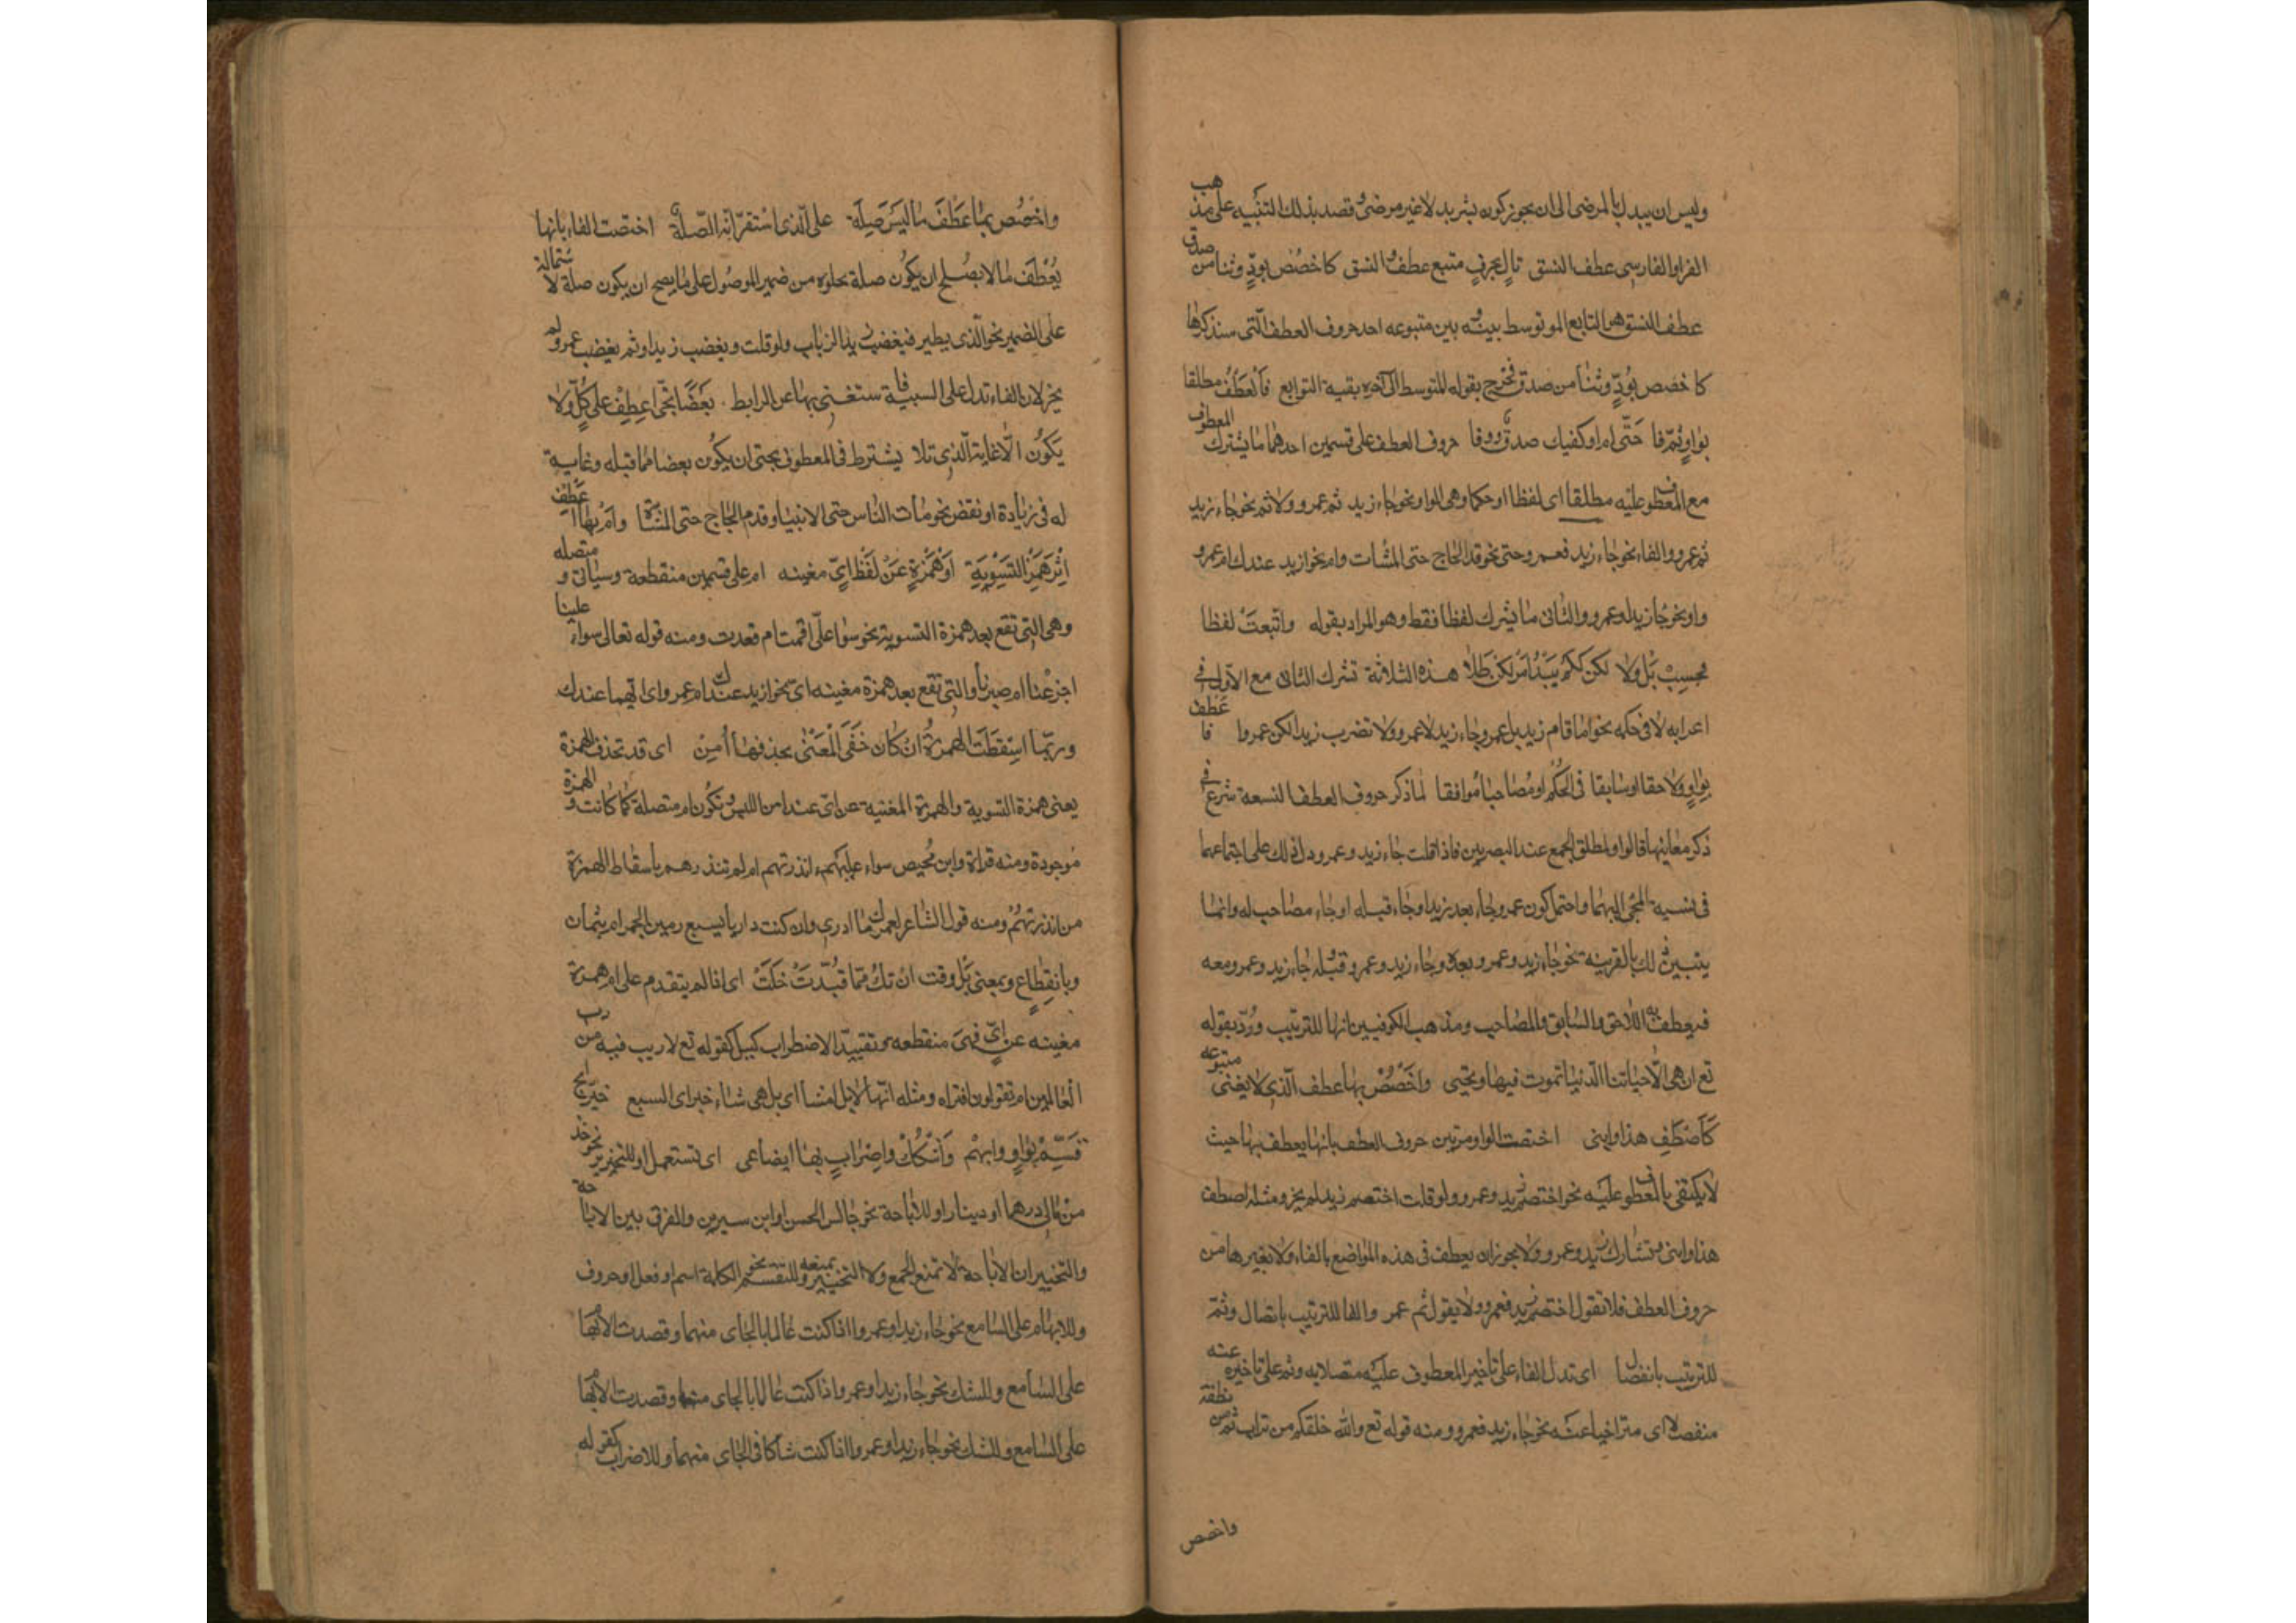 وليس ان يبدل بالمرضى الى ان يجوز كون بشر بدلا غير مرضى وقصد بذلك التنبيه على مذهب
الفرا والفارسى عطف النسق تال بحرف متبع عطف النسق كاخصص بود وثنا من صدق
عطف النسق هو التابع المتوسط بينه بين متبوعه احد حروف العطف التى سنذكرها
كاخصص بود وثنا من صدق فخرج بقوله المتوسط الى آخره بقية التوابع فالعطف مطلقا
بواو ثم فا حتى ام او كفيك صدق ووفا حروف العطف على قسمين احدهما ما يشرك المعطوف
مع المعطوف عليه مطلقا اى لفظا او حكما وهى الواو نحو جاء زيد ثم عمرو ولا ثم نحو جاء زيد
ثم عمرو والفاء نحو جاء زيد فعمرو وحتى نحو قدم الحاج حتى المشات وام نحو ازيد عندك ام عمرو
واو نحو جا زيد او عمرو والثانى ما يشرك لفظا فقط وهو المراد بقوله واتبعت لفظا
فحسب بل ولا لكن كلم يبد امر لكن طلا هذه الثلاثة تشرك الثانى مع الاول فى
اعرابه لا فى حكمه نحو ما قام زيد بل عمرو وجاء زيد لا عمرو ولا تضرب زيدا لكن عمروا فاعطف
بواو ولاحقا او سابقا فى الحكم او مصاحبا موافقا لما ذكر حروف العطف التسعة شرع فى
ذكر معاينها فالواو لمطلق الجمع عند البصريين فاذا قلت جاء زيد وعمرو دل ذلك على اجتماعهما
فى نسبة المجئ اليهما واحتمل كون عمرو جاء بعد زيد او جاء قبله او جاء مصاحب له وانما
يتبين ذلك بالقرينه نحو جاء زيد وعمرو بعده وجاء زيد وعمرو قبله جاء زيد وعمرو معه
فيعطف به اللاحق والسابق والمصاحب ومذهب الكوفيين انها للترتيب ورد بقوله
تع ان هى الا حياتنا الدنيا تموت فيها ونحيى واخصص بها عطف الذى لا يغنى متبوعه
كاصطف هذا وابنى اختصت الواو من بين حروف العطف بانها يعطف بها حيث
لا يكتفى بالمعطوف عليه نحو اختصم زيد وعمرو ولو قلت اختصم زيد لم يجز ومثله اصطف
هذا وابنى وتشارك زيد وعمرو ولا يجوز ان يعطف فى هذه المواضع بالفاء ولا بغيرها من
حروف العطف فلا تقول اختصم زيد فعمرو ولا يقول ثم عمر والفا للترتيب باتصال وثم
للترتيب بانفصال اى تدل الفاء على تاخير المعطوف عليه متصلا به وثم على تاخيره عنه
منفصلا اى متراخيا عنه نحو جاء زيد فعمرو ومنه قوله تع والله خلقكم من تراب ثم من نطفة
واخصص
واخصص بفا عطف ما ليس صلة على الذى استقر انه الصلة اختصت الفاء بانها
يعطف ما لا يصلح ان يكون صلة بخلوه من ضمير الموصول على ما يصح ان يكون صلة لاشتماله
على الضمير نحو الذى يطير فيغضب زيد الذباب ولو قلت ويغضب زيد او ثم يغضب عمرو لم
يجز لان الفاء تدل على السببية فاستغنى بها عن الرابط بعضا بحتى اعطف على كل ولا
يكون الا غاية الذى تلا يشترط فى المعطوف بحتى ان يكون بعضا مما قبله وغاية
له فى زيادة او نقض نحو مات الناس حتى الانبيا وقدم الحاج حتى المشاة وام بها اعطف
اثر همز التسوية او همزة عن لفظ اى مغينه ام على قسمين منقطعة وسياتى ومتصله
وهى التى تقع بعد همزة التسوية نحو سوا على اقمت ام قعدت ومنه قوله تعالى سواء علينا
اجزعنا ام صبرنا والتى تقع بعد همزة مغينه اى نحو ازيد عندك ام عمرو اى ايهما عندك
وربما اسقطت الهمزة ان كان خفى المعنى بحذفها امن اى قد تحذف الهمزة
يعنى همزة التسوية والهمزة المغنية عن اى عند امن اللبس وتكون ام متصلة كما كانت والهمزة
موجودة ومنه قراة وابن محيص سواء عليهم ءانذرتهم ام لم تنذرهم باسقاط الهمزة
من انذرتهم ومنه قول الشاعر لعمرك ما ادرى وان كنت داريا بسبع رمين الجمر ام بثمان
وبانقطاع وبمعنى بل وفت ان تك مما قيدت خلت اى اذا لم يتقدم على ام همزة
مغينه عن اى فهى منقطعه وتقييد الاضطراب كبل كقوله تع لا ريب فيه من رب
العالمين ام تقولون افتراه ومثله انها لابل ام شا اى بل هى شاء خبر اى السبع خير ابح
قسم بواو وابهم واشكك واضراب بها ايضا عى اى تستعمل او للتخيير نحو خذ
من مالى درهما او دينارا وللاباحة نحو جالس الحسن او ابن سيرين والفرق بين الاباحة
والتخيير ان الاباحة لا تمنع الجمع ولا التخيير يمنعه وللتقسيم نحو الكلمة اسم او فعل او حروف
وللابهام على السامع نحو جاء زيد او عمرو اذا كنت عالما بالجاى منهما وقصدت الابهام
على السامع وللشك نحو جاء زيد او عمرو اذا كنت عالما بالجاى منهما وقصدت الابهام
على السامع وللشك نحو جاء زيد او عمرو اذا كنت شاكا فى الجاى منهما وللاضراب كقوله